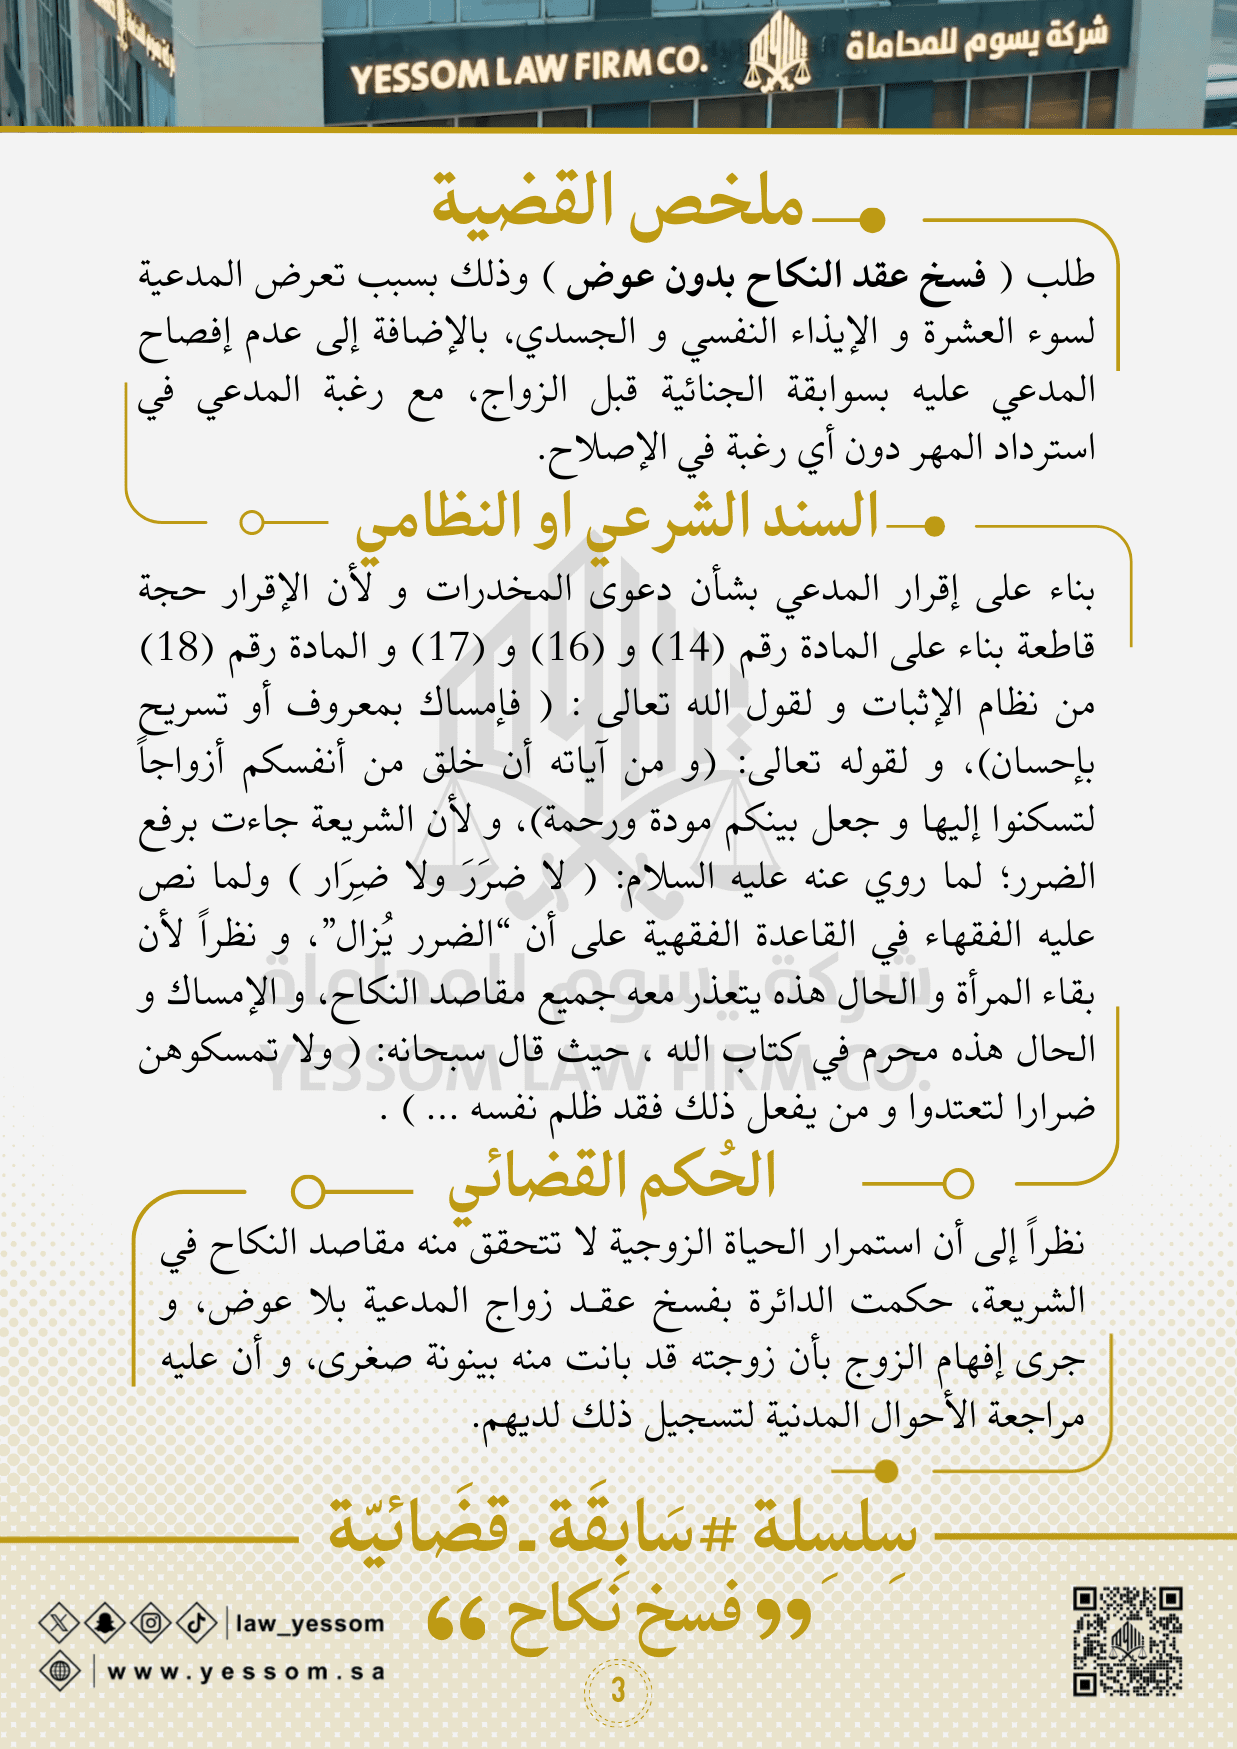 شركة يسوم للمحاماة
YESSOM LAW FIRM CO.
ملخص القضية
طلب ( فسخ عقد النكاح بدون عوض ) وذلك بسبب تعرض المدعية
لسوء العشرة و الإيذاء النفسي و الجسدي، بالإضافة إلى عدم إفصاح
المدعي عليه بسوابقة الجنائية قبل الزواج، مع رغبة المدعي في
استرداد المهر دون أي رغبة في الإصلاح.
السند الشرعي او النظامي
بناء على إقرار المدعي بشأن دعوى المخدرات و لأن الإقرار حجة
قاطعة بناء على المادة رقم (14) و (16) و (17) و المادة رقم (18)
من نظام الإثبات و لقول الله تعالى : ( فإمساك بمعروف أو تسريح
بإحسان)، و لقوله تعالى: (و من آياته أن خلق من أنفسكم أزواجاً
لتسكنوا إليها و جعل بينكم مودة ورحمة)، و لأن الشريعة جاءت برفع
الضرر؛ لما روي عنه عليه السلام: ( لا ضرَرَ ولا ضِرَار ) ولما نص
عليه الفقهاء في القاعدة الفقهية على أن “الضرر يُزال”، و نظراً لأن
بقاء المرأة و الحال هذه يتعذر معه جميع مقاصد النكاح، و الإمساك و
الحال هذه محرم في كتاب الله ، حيث قال سبحانه: ( ولا تمسكوهن
ضرارا لتعتدوا و من يفعل ذلك فقد ظلم نفسه ... ) .
شركة يسوم للمحاماة
YESSOM LAW FIRM CO.
الحُكم القضائي
نظراً إلى أن استمرار الحياة الزوجية لا تتحقق منه مقاصد النكاح في
الشريعة، حكمت الدائرة بفسخ عقـد زواج المدعية بلا عوض، و
جرى إفهام الزوج بأن زوجته قد بانت منه بينونة صغرى، و أن عليه
مراجعة الأحوال المدنية لتسجيل ذلك لديهم.
سِلسِلة #سَابِقَة_قضَائيّة
”فسخ نكاح“
law_yessom
www.yessom.sa
3